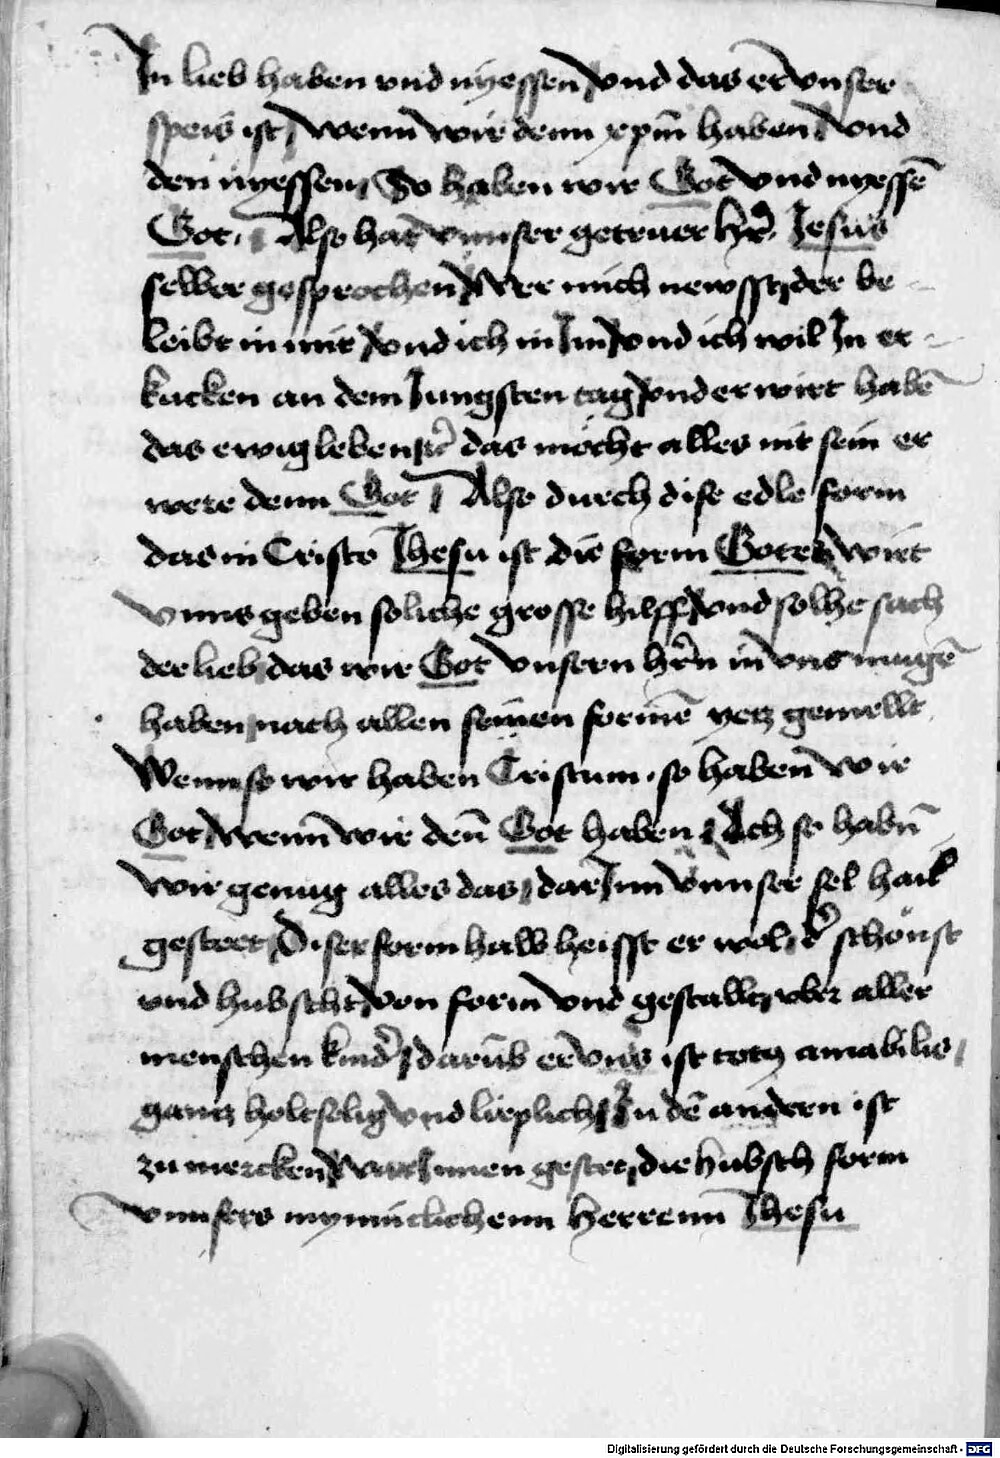 In lieb haben vnd nyessen vnd das er vnser
speis ist wenn wir denn xpm̄ haben vnd
den nyessen So haben wir Got vnd nyessē
Got. Also hat vnnser getruer hr̄. Jesus
selber gesprochen Wer mich newsst der be
leibt in mir vnd ich in Im vnd ich wil In er
kucken an dem Jungsten tag vnd er wirt habē
das ewig leben das möcht alles nit sein er
were denn Got Also durch dise edle form
das in Cristo Jhesu ist die form Gotes wirt
vnns geben soliche grosse hilff vnd solhe sach
der lieb das wir Got vnsern hr̄n in vns mugē
haben nach allen seinen formē yetz gemellt
Wenn so wir haben Cristum. so haben wir
Got wenn wir den̄ Got haben Ach so habn̄
wir genug alles das dar Inn vnnser sel hail
gesteet Diser form halb heisst er wol der schönst
vnd hubscht von form vnd gestallt vber aller
menschen kinder darūb er vns ist totus amabilis
gantz holtselig vnd lieplich In dē andern ist
zu mercken War Innen gestet die hubsch form
vnnsers mynniclichenn herrenn Jhesu
Digitalisierung gefördert durch die Deutsche Forschungsgemeinschaft - DFG